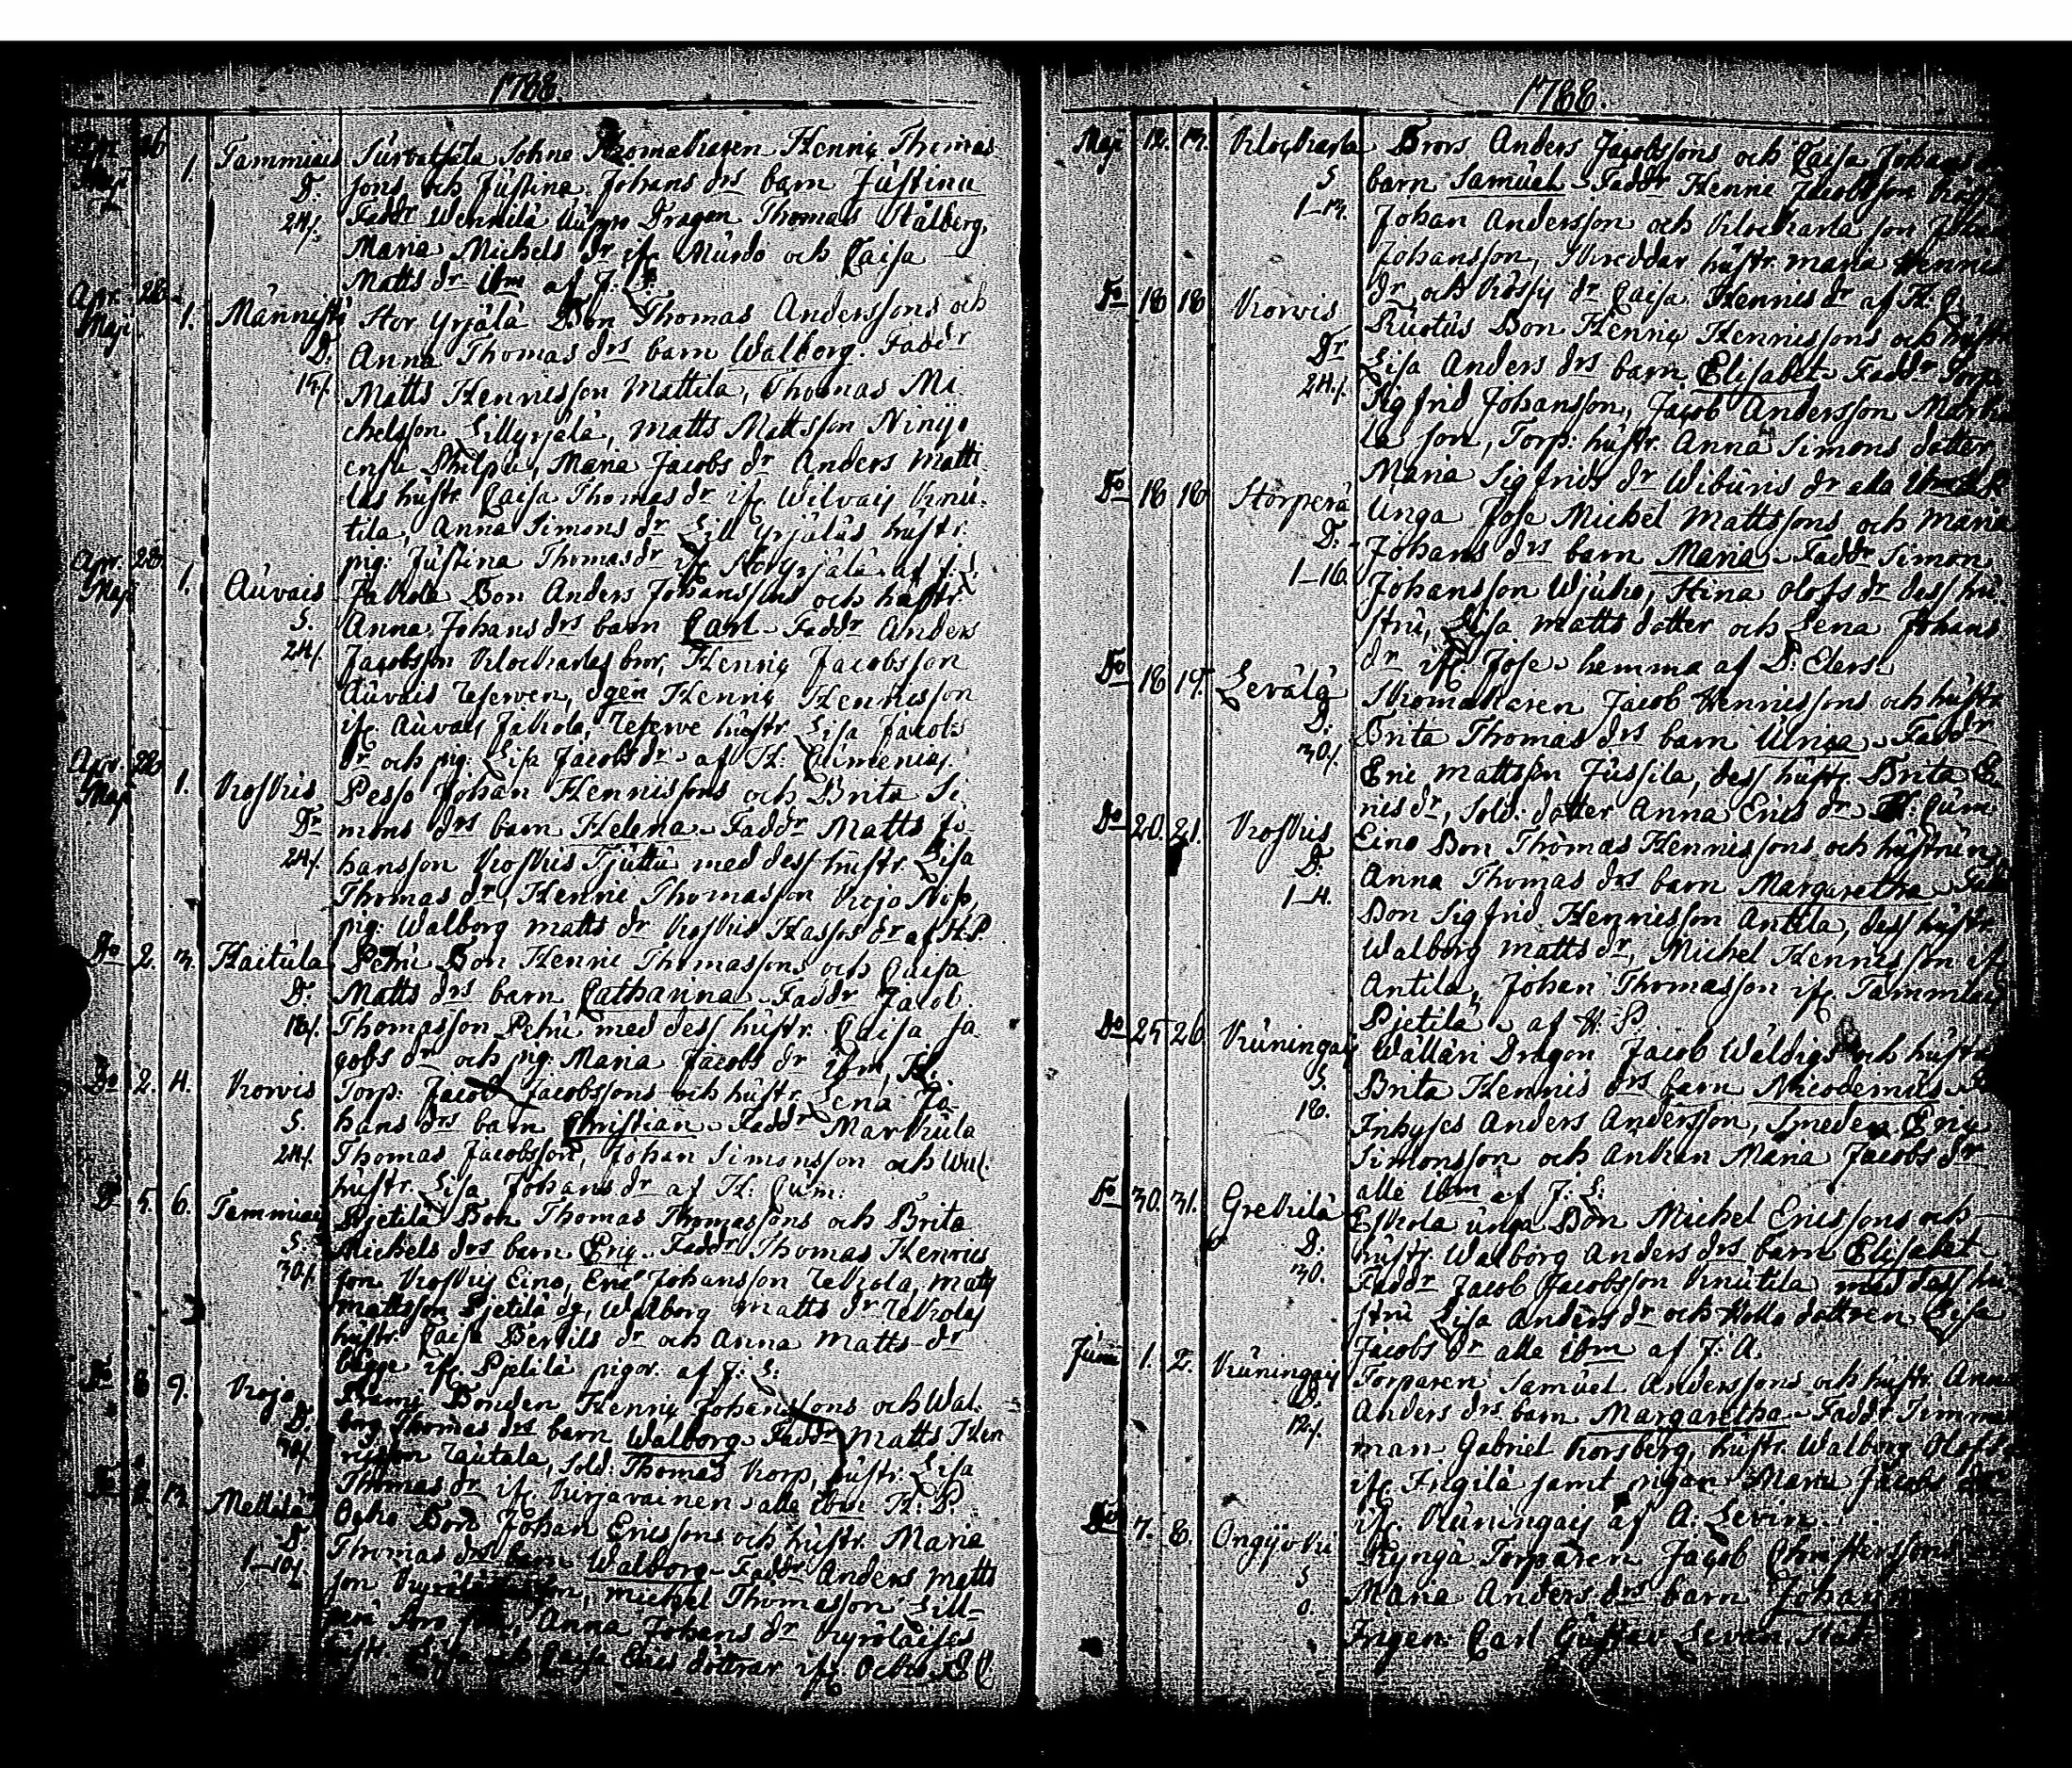 1788.
Apr. 26 Maji 1. Tammiais Survatsala Sohne Skomakaren Henric Thomas
D. sons och Justina Johans drs barn Justina
24/. Faddr Wennilä Dragon Thomas Stålberg,
Maria Michels dr if Murdo och Caisa
Matts dr ibm af J: L:
Apr. 28 Maji 1. Männistö Stor Yrjälä Bon Thomas Anderssons och
D. Anna Thomas drs barn Walborg. Faddr
Matts Henricsson Mattila, Thomas Mi-
chelsson Lillyrjälä, Matts Mattsson
Maria Jacobs dr Anders Matti-
las hustr. Caisa Thomas dr if Knu-
tila, Anna Simons dr Lill Yrjäläs hustr.
pig: Justina Thomas dr if Storyrjälä af J: L
Apr. 28 Maji 1. Auvais Jakola Bon Anders Johanssons och hustr
S. Anna Johans drs barn Carl Faddr Anders
24/. Jacobsson Klockarlas bror, Henric Jacobsson
Auvais Reserven, dgen Henric Henricsson
if Auvais Jakola, Reserve hustr. Lisa Jacobs
dr och pig: Lisa Jacobs dr af H: Climenius.
Apr. 28 Maji 1. Koskis Pesso Johan Henricssons och Brita Si-
Dr mons drs barn Helena Faddr Matts Jo-
24/. hansson Koskis Tjuttu med dess hustr. Lisa
Thomas dr, Henric Thomasson
pig: Walborg Matts dr Koskis Hassos dr af H.P.
Do 2. 3. Haitula Pehu Bon Henric Thomassons och Caisa
D. Matts drs barn Catharina Faddr Jacob
18/. Thomasson Pehu med dess hustr. Caisa Ja-
cobs dr och pig: Maria Jacobs dr ibm,
Do 2. 4. Korvis Torp: Jacob Jacobssons och hustr. Lena Jo-
S. hans drs barn Christian Faddr Markula
24/. Thomas Jacobsson, Johan Simonsson och
hustr. Lisa Johans dr af H: Cum:
Do 5. 6. Tammiais Pjetilä Bon Thomas Thomassons och Brita
S. Michels drs barn Eric Faddr Thomas Henrics
30/. son Koskis Eino, Eric Johansson Rekola, Matts
Mattsson Pjetilä dg, Walborg Matts dr Rekolas
hustr. Caisa Bertils dr och Anna Matts dr
bägge if Pjetilä pigor. af J: L:
Do 8 9. Kojo Bonden Henric Johanssons och Wal-
D. borg Thomas drs barn Walborg Faddr Matts Hen
30/. ricsson Rautala, Sold: Thomas Korp, hustr. Lisa
Thomas dr if Kurjavainen alla ibm H: P.
Mellilä Ocho Bon Johan Ericssons och hustr. Maria
D. Thomas drs barn Walborg Faddr Anders Matts
1–10/. son, Michel Thomasson Lill-
Anna Johans dr Kyrölaises
hustr. Lisa och Caisa Erics döttrar if Ocho
1788.
Maji 12. 13. Klockarla Brors Anders Jacobssons och Caisa Johans
S barn Samuel Faddr Henric Jacobsson
1–13. Johan Andersson och Klockarla son Johan
Johansson, Skreddar hustr. Maria Henrics
dr och dr Caisa Henrics dr af H. C.
Do 18 18 Korvis Ruotus Bon Henric Henricssons och hustr
Dr Lisa Anders drs barn Elisabet Faddr Torp
24/. Sigfrid Johansson, Jacob Andersson Marku
la son, Torp: hustr. Anna Simons dotter,
Maria Sigfrids dr Wiburis dr alla ibm
Do 18 18 Storperä Unga Jose Michel Mattssons och Maria
D. Johans drs barn Maria Faddr Simon
1–16. Johansson Wjuho, Stina Olofs dr dess hu
stru, Lisa Matts dotter och Lena Johans
dr if Jose hemma af P: Elers.
Do 18 19. Levälä Skomakaren Jacob Henricssons och hustr
D. Brita Thomas drs barn Ulrica Faddr
30/. Eric Mattsson Jussila, dess hustr. Brita E
rics dr, Sold: dotter Anna Erics dr H: Cum
Do 20. 21. Koskis Eino Bon Thomas Henricssons och hustrun
D. Anna Thomas drs barn Margaretha Fadd
1–4. Bon Sigfrid Henricsson Antila, dess hustr
Walborg Matts dr, Michel Henricsson if
Antila, Johan Thomasson if Tammiais
Pjetilä af H. P.
Do 25 26 Kuningais Wälläri Dragon Jacob Wäldigs och hustr
S. Brita Henrics drs barn Nicodemus
18. Inhyses Anders Andersson, Smeden Eric
Simonsson och änkan Maria Jacobs dr
alle ibm af J: L:
Do 30. 31. Grekilä Eskola unga Bon Michel Ericssons och
D. hustr. Walborg Anders drs barn Elisabet
30. Faddr Jacob Jacobsson Knutila med dess hu
stru Lisa Anders dr och Hollo dottren Lisa
Jacobs dr alla ibm af J: A.
Juni 1. 2. Kuningais Torparen Samuel Anderssons och hustr. Anna
D. Anders drs barn Margaretha Faddr Timmer
12/. man Gabriel Korsberg, hustr. Walborg Olofs
if Frigilä samt pigan Maria Jacobs dr
if Kuningais af A: Levin.
Do 7. 8. Ongijoki Kyngä Torparen Jacob Christerssons
S Maria Anders drs barn Johan
0. Ingen. Carl Gustav Levin